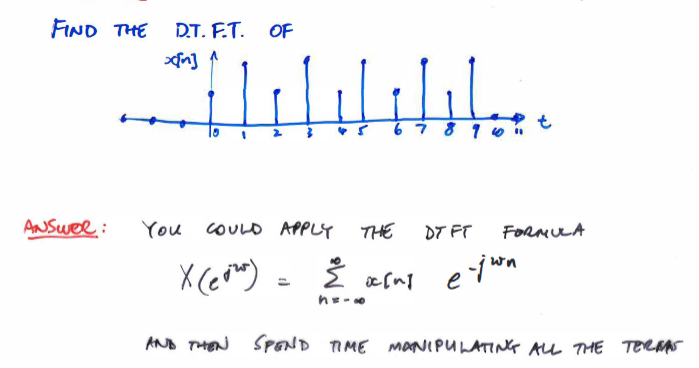 FIND THE D.T.F.T. OF
x[n]
0 1 2 3 4 5 6 7 8 9 10 11 t
ANSWER: YOU COULD APPLY THE DTFT FORMULA
X(e^{jω}) = ∑_{n=-∞}^{∞} x[n] e^{-jωn}
AND THEN SPEND TIME MANIPULATING ALL THE TERMS